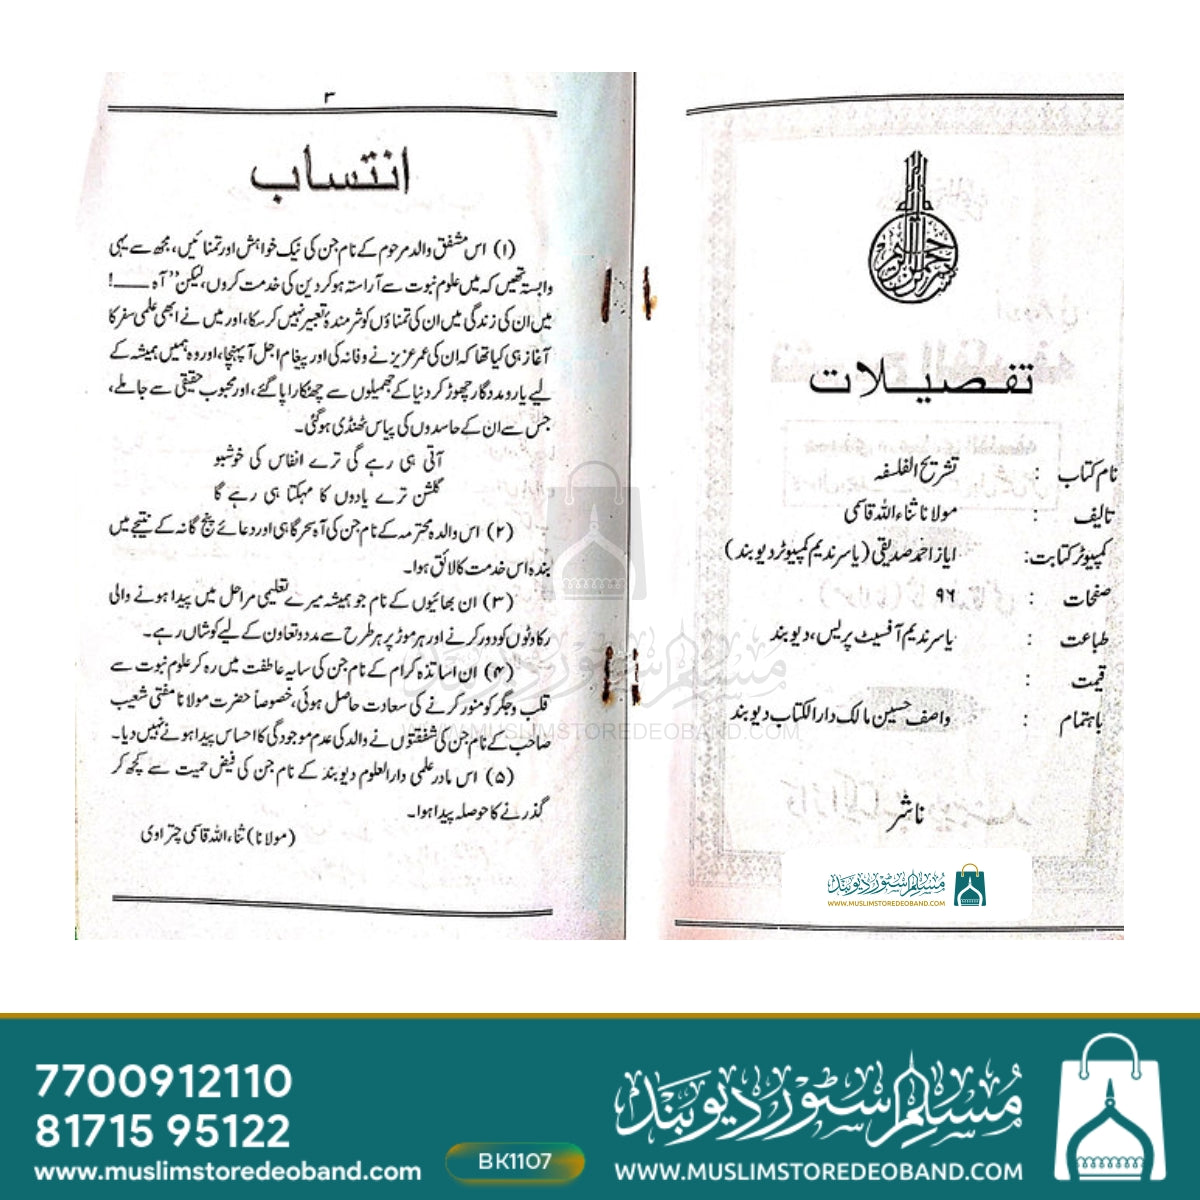 بسم اللہ الرحمن الرحیم
تفصیلات
نام کتاب : تشریح الفلسفہ
تالیف : مولانا ثناء اللہ قاسمی
کمپیوٹر کتابت: ایاز احمد صدیقی (یاسر ندیم کمپیوٹر دیوبند)
صفحات : ۹۶
طباعت : یاسر ندیم آفسیٹ پریس، دیوبند
قیمت :
باہتمام : واصف حسین مالک دارالکتاب دیوبند
ناشر
مسلم سٹور دیوبند
WWW.MUSLIMSTOREDEOBAND.COM
۳
انتساب
(۱) اس مشفق والد مرحوم کے نام جن کی نیک خواہش اور تمنائیں، مجھ سے یہی
وابستہ تھیں کہ میں علوم نبوت سے آراستہ ہوکر دین کی خدمت کروں، لیکن ”آہ ——!
میں ان کی زندگی میں ان کی تمناؤں کو شرمندۂ تعبیر نہیں کرسکا، اور میں نے ابھی علمی سفر کا
آغاز ہی کیا تھا کہ ان کی عمر عزیز نے وفا نہ کی اور پیغام اجل آپہنچا، اور وہ ہمیں ہمیشہ کے
لیے یار و مددگار چھوڑ کر دنیا کے جھمیلوں سے چھٹکارا پاگئے، اور محبوب حقیقی سے جاملے،
جس سے ان کے حاسدوں کی پیاس ٹھنڈی ہوگئی۔
آتی ہی رہے گی ترے انفاس کی خوشبو
گلشن ترے یادوں کا مہکتا ہی رہے گا
(۲) اس والدہ محترمہ کے نام جن کی آہ سحر گاہی اور دعائے پنج گانہ کے نتیجے میں
بندہ اس خدمت کا لائق ہوا۔
(۳) ان بھائیوں کے نام جو ہمیشہ میرے تعلیمی مراحل میں پیدا ہونے والی
رکاوٹوں کو دور کرنے اور ہر موڑ پر ہر طرح سے مدد و تعاون کے لیے کوشاں رہے۔
(۴) ان اساتذہ کرام کے نام جن کی سایہ عاطفت میں رہ کر علوم نبوت سے
قلب و جگر کو منور کرنے کی سعادت حاصل ہوئی، خصوصاً حضرت مولانا مفتی شعیب
صاحب کے نام جن کی شفقتوں نے والد کی عدم موجودگی کا احساس پیدا ہونے نہیں دیا۔
(۵) اس مادر علمی دارالعلوم دیوبند کے نام جن کی فیض حمیت سے کچھ کر
گذرنے کا حوصلہ پیدا ہوا۔
(مولانا) ثناء اللہ قاسمی چتراوی
مسلم سٹور دیوبند
WWW.MUSLIMSTOREDEOBAND.COM
7700912110
81715 95122
www.muslimstoredeoband.com
BK1107
مسلم سٹور دیوبند
WWW.MUSLIMSTOREDEOBAND.COM